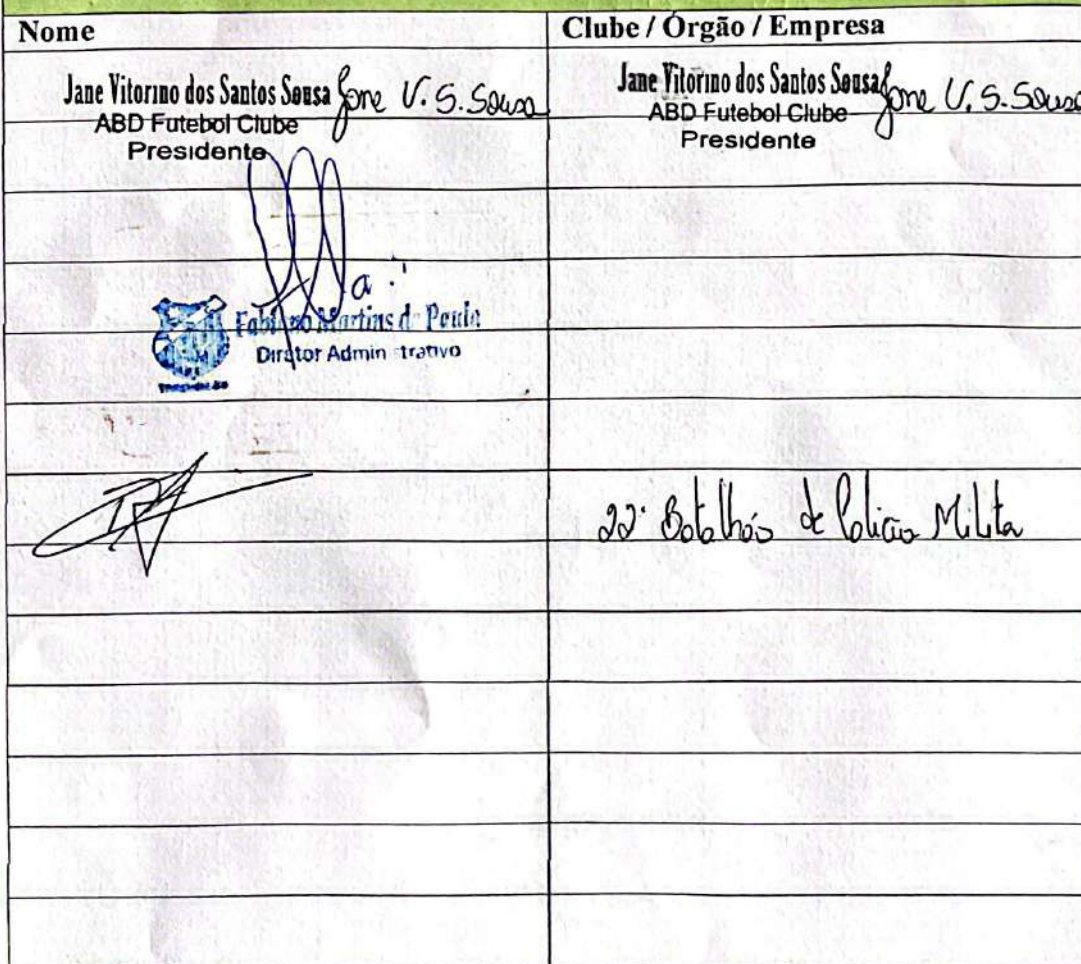 Nome
Clube / Órgão / Empresa
Jane Vitorino dos Santos Sousa Jane V. S. Sousa
ABD Futebol Clube
Presidente
Jane Vitorino dos Santos Sousa Jane V. S. Sousa
ABD Futebol Clube
Presidente
Fabiano Martins de Paula
Diretor Administrativo
22º Batalhão de Polícia Milita